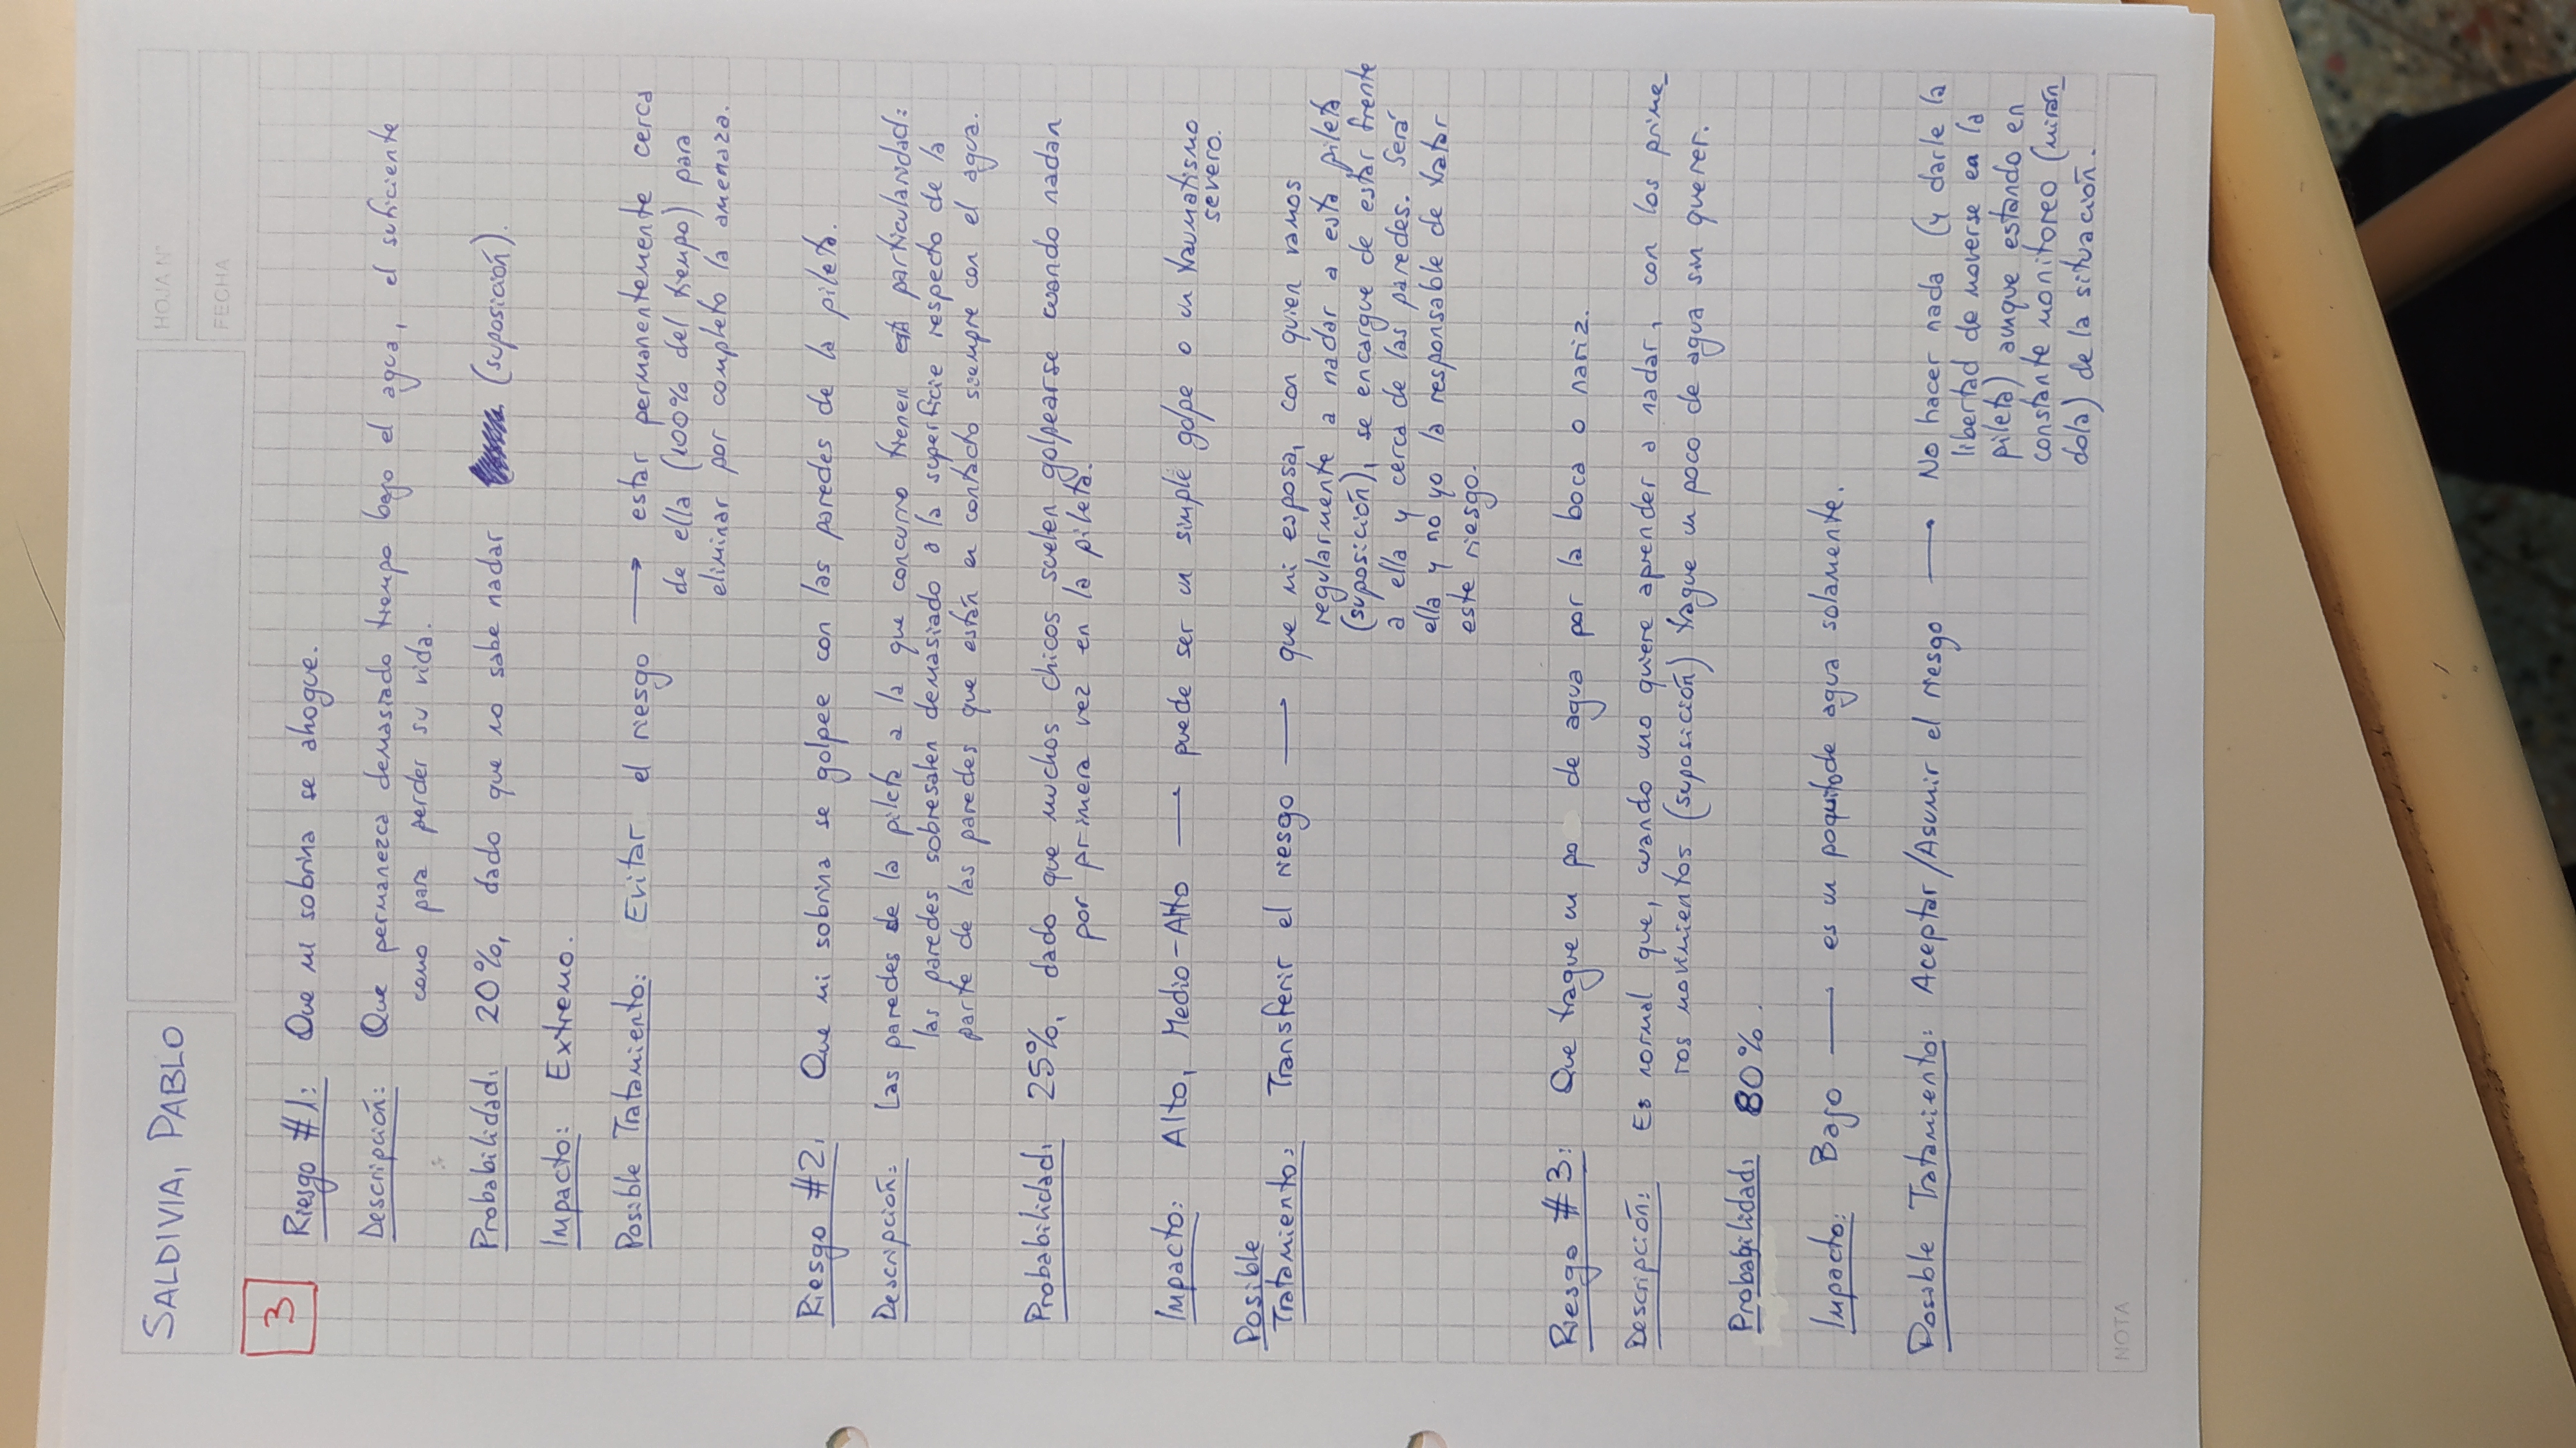 SALDIVIA, PABLO
HOJA N°
FECHA
3
Riesgo #1: Que mi sobrina se ahogue.
Descripción: Que permanezca demasiado tiempo bajo el agua, el suficiente
como para perder su vida.
Probabilidad: 20%, dado que no sabe nadar (suposición).
Impacto: Extremo.
Posible Tratamiento: Evitar el riesgo → estar permanentemente cerca
de ella (100% del tiempo) para
eliminar por completo la amenaza.
Riesgo #2: Que mi sobrina se golpee con las paredes de la pileta.
Descripción: Las paredes de la pileta a la que concurro tienen esta particularidad:
las paredes sobresalen demasiado a la superficie respecto de la
parte de las paredes que están en contacto siempre con el agua.
Probabilidad: 25%, dado que muchos chicos suelen golpearse cuando nadan
por primera vez en la pileta.
Impacto: Alto, Medio-Alto → puede ser un simple golpe o un traumatismo
severo.
Posible
Tratamiento: Transferir el riesgo → que mi esposa, con quien vamos
regularmente a nadar a esta pileta
(suposición), se encargue de estar frente
a ella y cerca de las paredes. Será
ella y no yo la responsable de tratar
este riesgo.
Riesgo #3: Que trague un po de agua por la boca o nariz.
Descripción: Es normal que, cuando uno quiere aprender a nadar, con los prime-
ros movimientos (suposición) trague un poco de agua sin querer.
Probabilidad: 80%.
Impacto: Bajo → es un poquito de agua solamente.
Posible Tratamiento: Aceptar/Asumir el riesgo → No hacer nada (y darle la
libertad de moverse en la
pileta) aunque estando en
constante monitoreo (mirán-
dola) de la situación.
NOTA